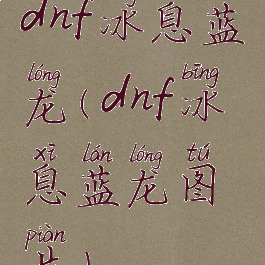 dnf冰息蓝
lóng bīng
龙(dnf冰
xī lán lóng tú
息蓝龙图
piàn
片)